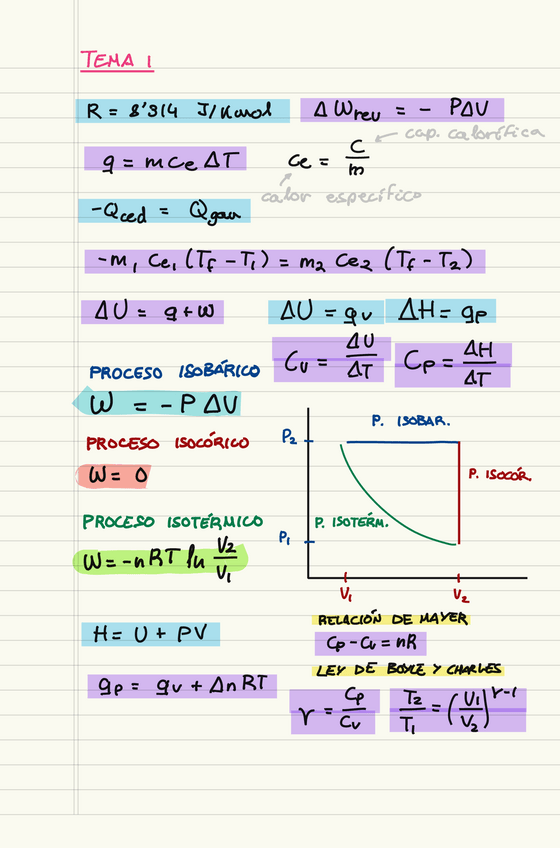 TEMA 1
R = 8'314 J/K mol
ΔWrev = - PΔV
cap. calorífica
q = m ce ΔT
ce = C/m
calor específico
-Qced = Qgan
-m1 ce1 (Tf - T1) = m2 ce2 (Tf - T2)
ΔU = q + w
ΔU = qv
ΔH = qp
Cv = ΔU/ΔT
Cp = ΔH/ΔT
PROCESO ISOBÁRICO
W = -P ΔV
PROCESO ISOCÓRICO
W = 0
PROCESO ISOTÉRMICO
W = -nRT ln V2/V1
P. ISOBAR.
P2
P. ISOCÓR.
P. ISOTÉRM.
P1
V1
V2
H = U + PV
qp = qv + ΔnRT
RELACIÓN DE MAYER
Cp - Cv = nR
LEY DE BOYLE Y CHARLES
γ = Cp/Cv
T2/T1 = (V1/V2)^γ-1